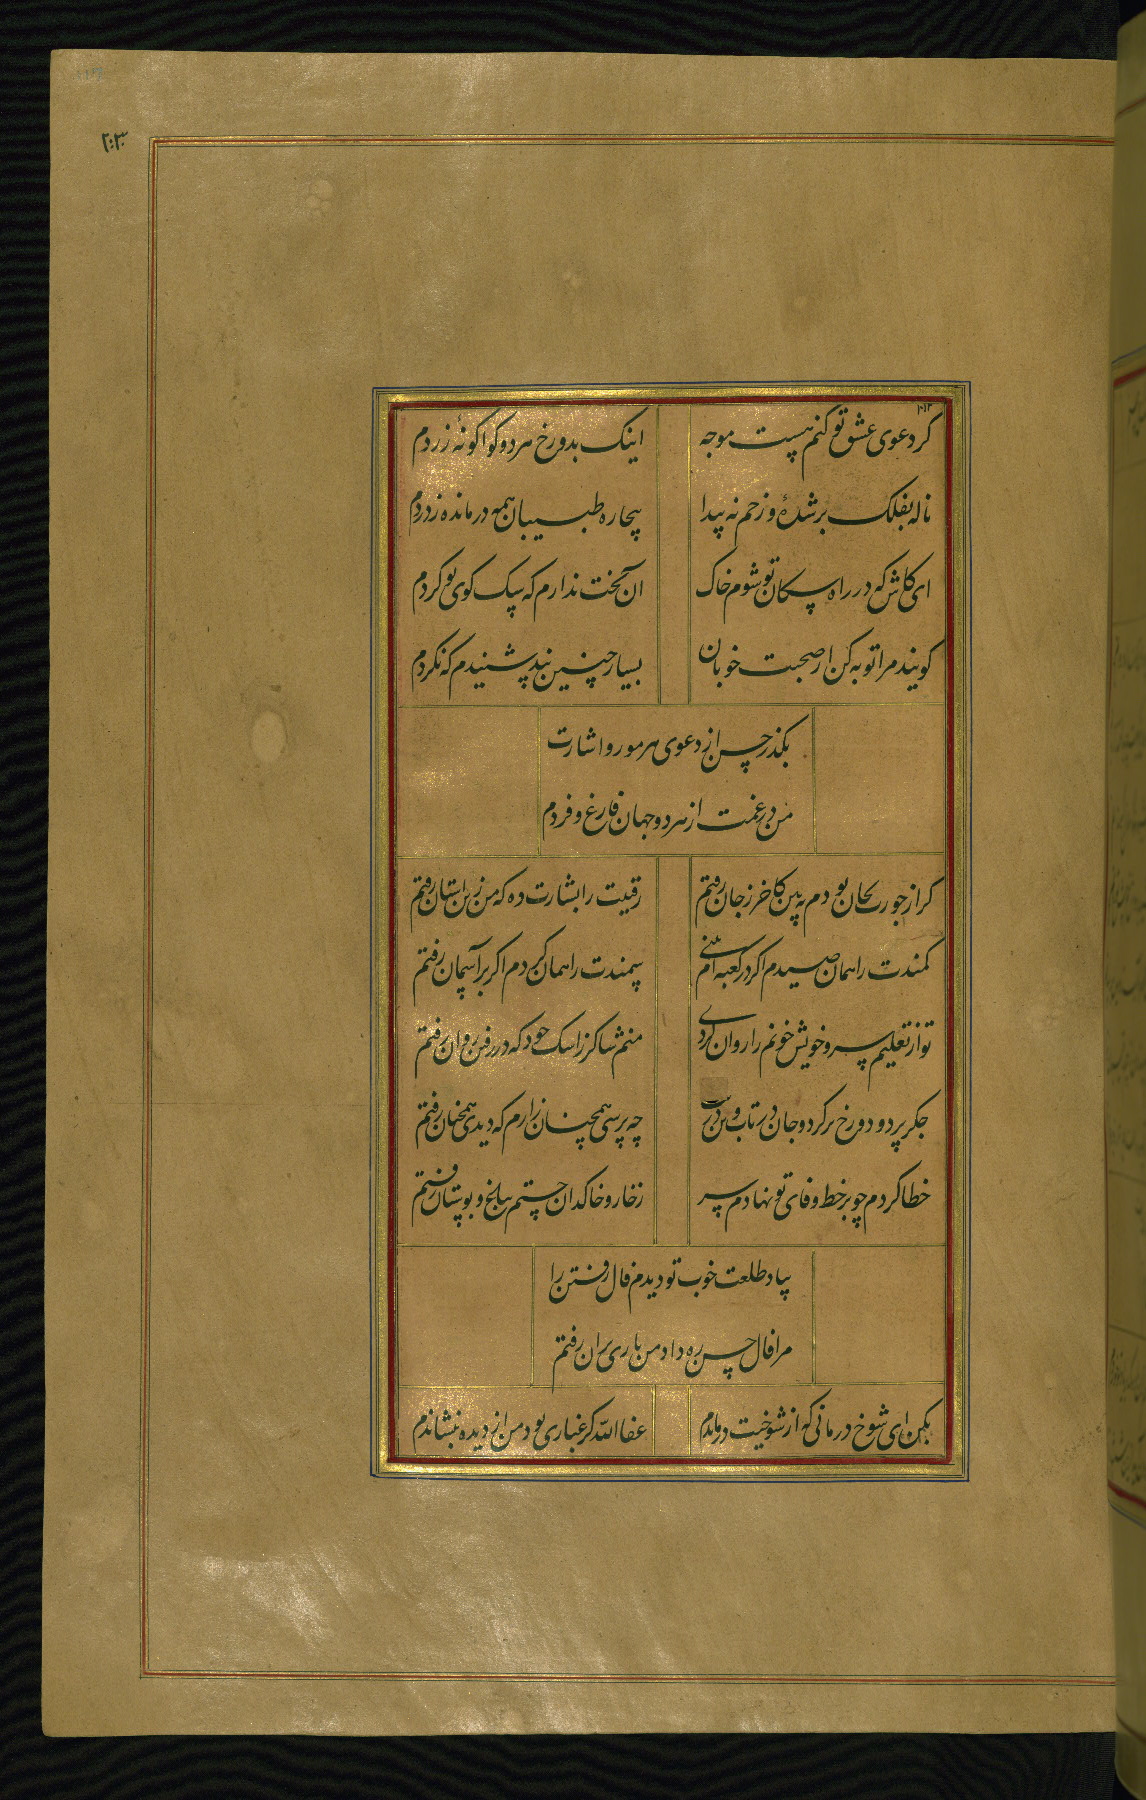 گر دعوی عشق تو کنم هست موجه
اینک بدو رخ هر دو گوا گونهٔ زردم
ناله بفلک بر شدهٔ و زحم نه پیدا
بیچاره طبیبان همه درمانده ز دردم
ای کاش که در راه سکان تو شوم خاک
ان بخت ندارم که سک کوی تو کردم
کویند مرا توبه کن از صحبت خوبان
بسیار چنین پند شنیدم که نکردم
بکذر حسن از دعوی هر مو رو اشارت
من در غمت از هر دو جهان فارغ و فردم
کر از جورت بجان بودم به بین کاخر ز جان رفتم
رقیبت را بشارت ده که من زین استان رفتم
کمندت را همان صیدم اکر در کعبه امنی
سمندت را همان کردم اکر بر آسمان رفتم
تو از تعلیم سرو خویش خونم را روان کردی
منم شاکر ز اشک خود که در رفتن روان رفتم
جکر پر درد و رخ پر کرد و جان در تاب و تن در تب
چه پرسی همچنان زارم که دیدی همچنان رفتم
خطا کردم چو بر خط وفای تو نهادم سر
ز خار و خاکدان جستم بباغ و بوستان رفتم
بیاد طلعت خوب تو دیدم فال رفتن را
مرا فال حسن ره داد من باری بران رفتم
بکن ای شوخ درمانی که از شوخیت درماندم
عفا الله کر غباری بود من از دیده بنشاندم